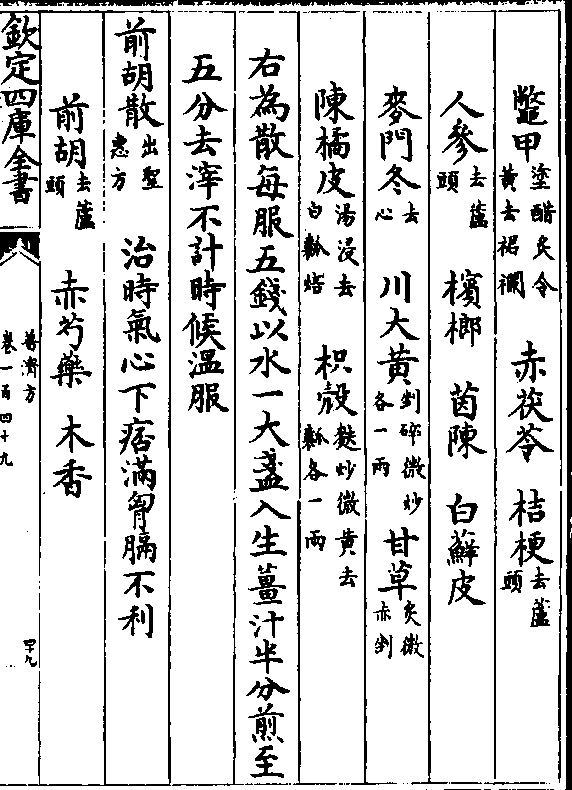 鼈甲塗醋炙令黄去裙襴 赤茯苓 桔梗去蘆頭
人參去蘆頭 檳榔 茵陳 白蘚皮
麥門冬去心 川大黄剉碎微炒各一兩 甘草炙微赤剉
陳橘皮湯浸去白瓤焙 枳殻麩炒微黄去瓤各一兩
右為散每服五錢以水一大盞入生薑汁半分煎至
五分去滓不計時候温服
前胡散出聖惠方 治時氣心下痞滿胷膈不利
前胡去蘆頭 赤芍藥 木香
欽定四庫全書
普濟方
卷一百四十九
四十九